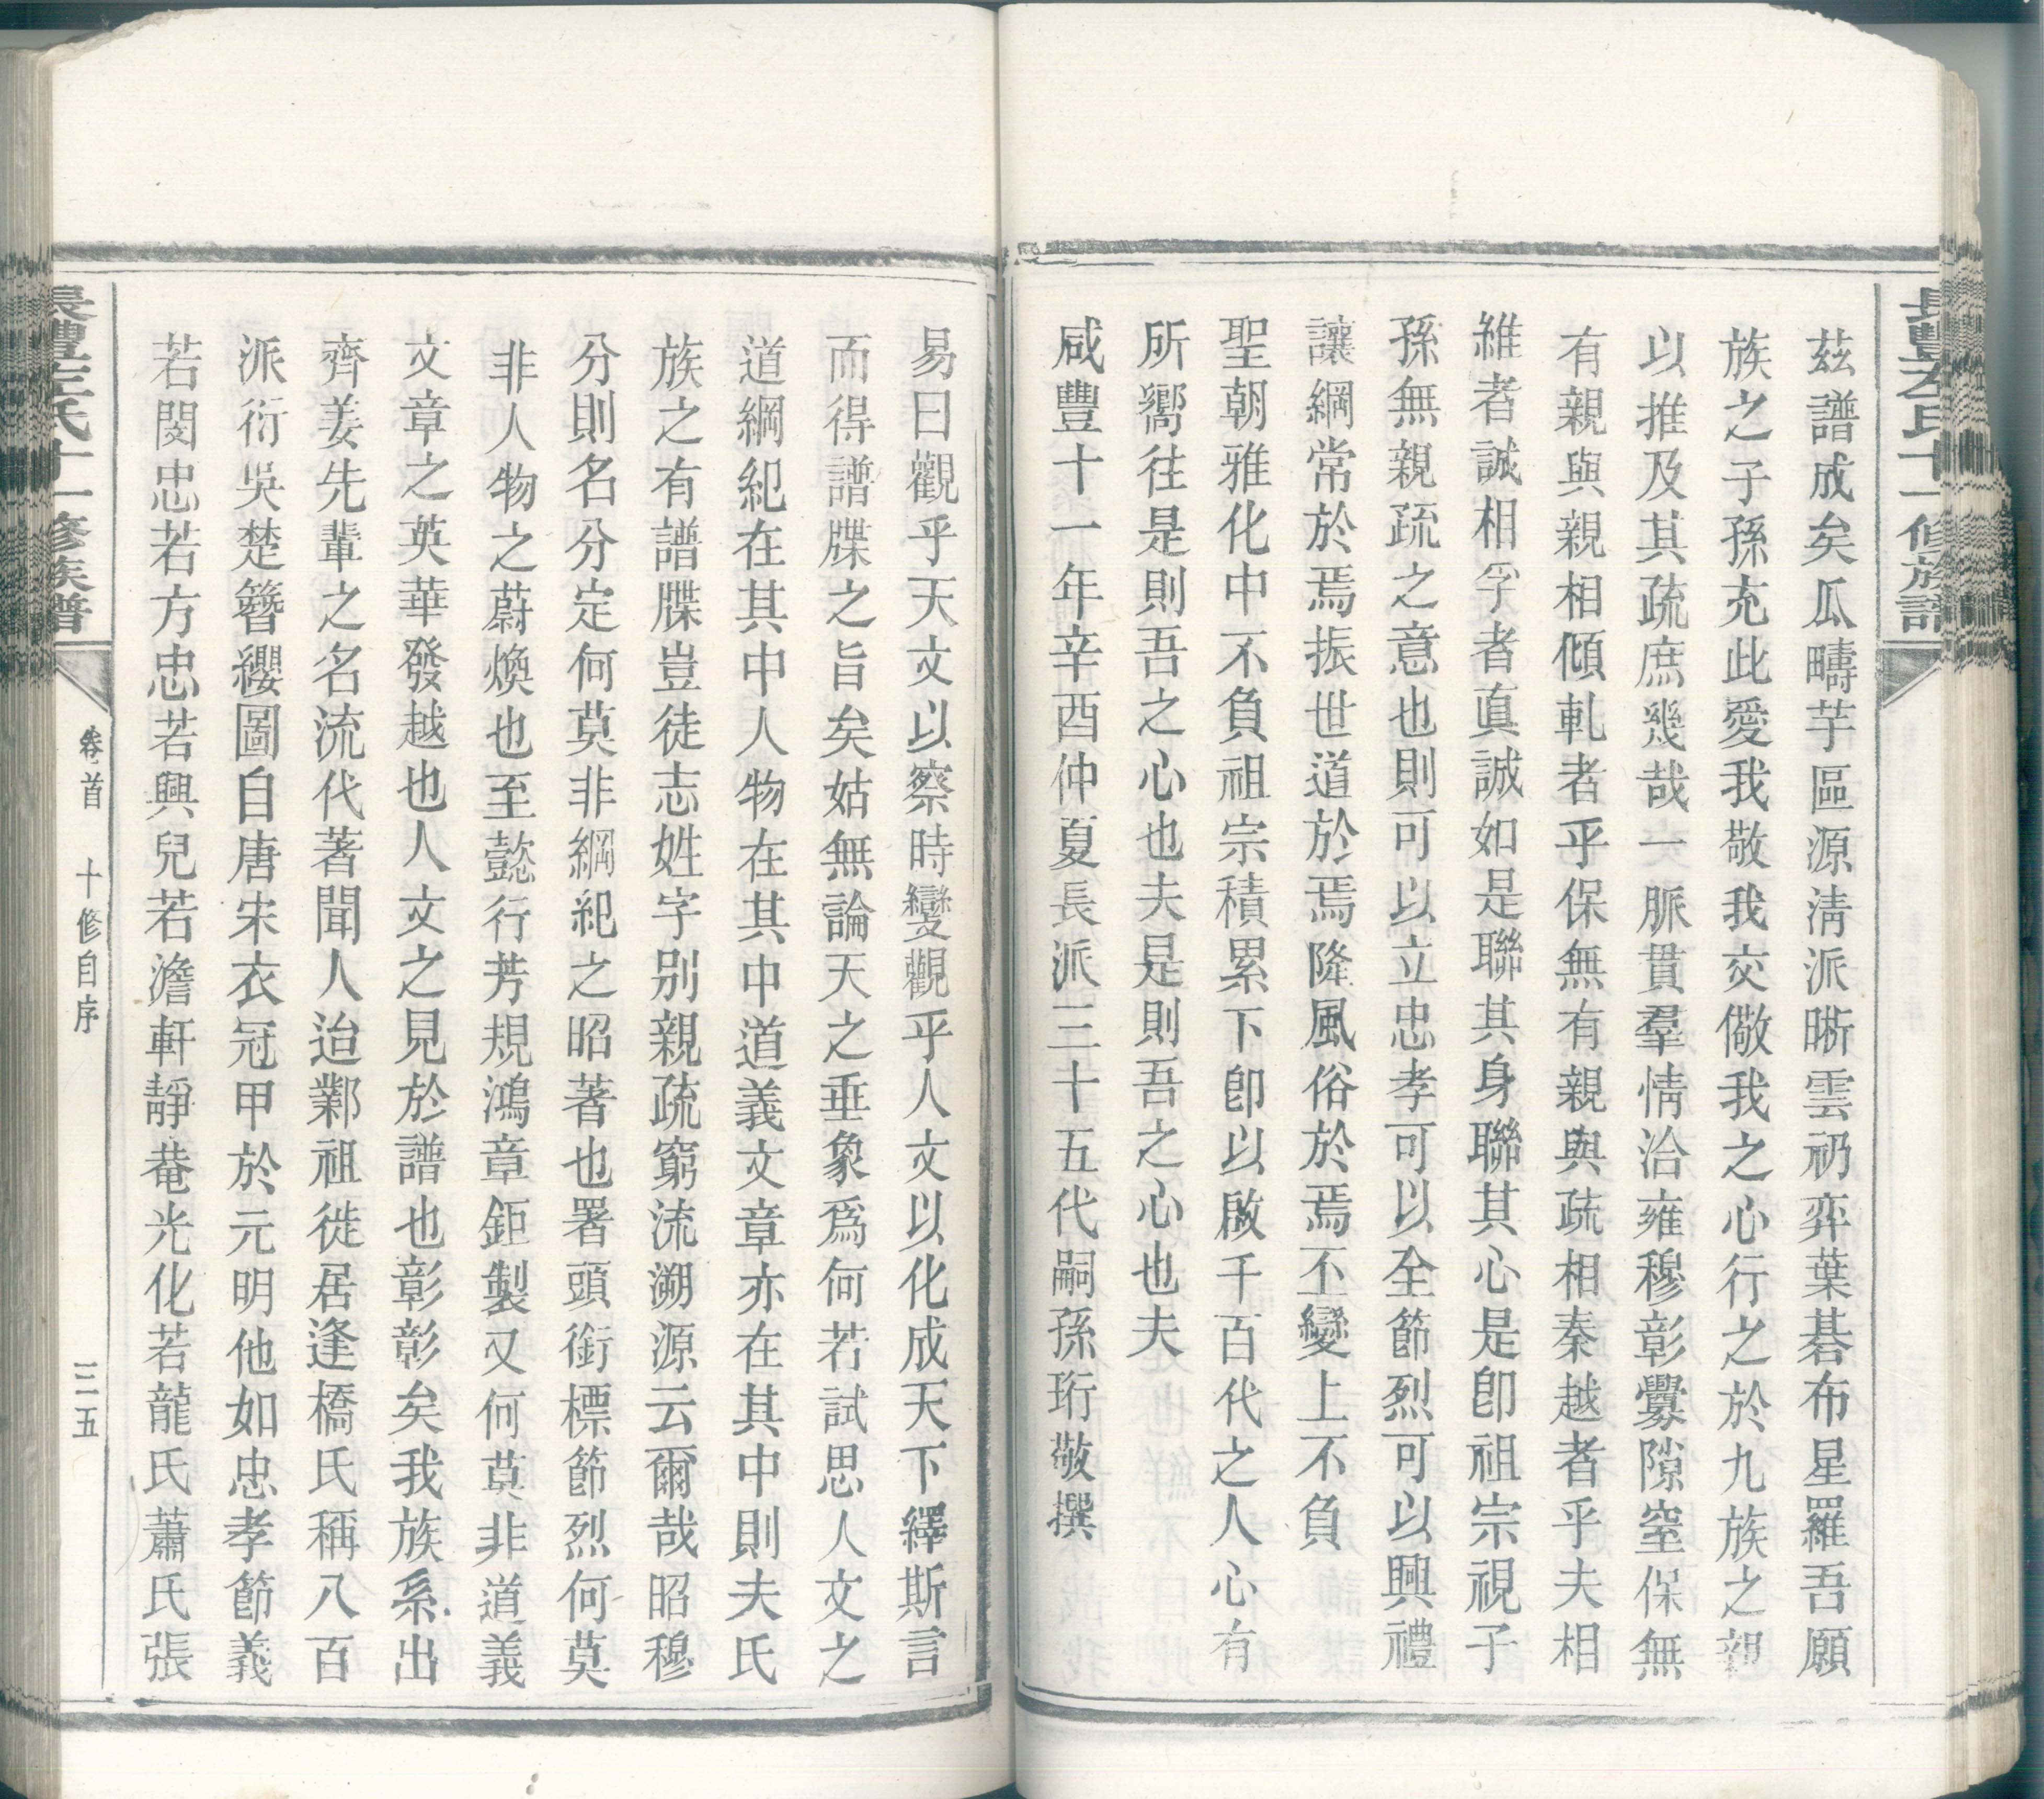 長豐左氏十一修族譜
茲譜成矣瓜疇芋區源淸派晰雲礽弈葉碁布星羅吾願
族之子孫充此愛我敬我交儆我之心行之於九族之親
以推及其疏庶幾哉一脈貫羣情洽雍穆彰釁隙窒保無
有親與親相傾軋者乎保無有親與疏相秦越者乎夫相
維者誠相孚者眞誠如是聯其身聯其心是卽祖宗視子
孫無親疏之意也則可以立忠孝可以全節烈可以興禮
讓綱常於焉振世道於焉降風俗於焉丕變上不負
聖朝雅化中不負祖宗積累下卽以啟千百代之人心有
所嚮往是則吾之心也夫是則吾之心也夫
咸豐十一年辛酉仲夏長派三十五代嗣孫珩敬撰
易曰觀乎天文以察時變觀乎人文以化成天下繹斯言
而得譜牒之旨矣姑無論天之垂象爲何若試思人文之
道綱紀在其中人物在其中道義文章亦在其中則夫氏
族之有譜牒豈徒志姓字別親疏窮流溯源云爾哉昭穆
分則名分定何莫非綱紀之昭著也署頭銜標節烈何莫
非人物之蔚煥也至懿行芳規鴻章鉅製又何莫非道義
文章之英華發越也人文之見於譜也彰彰矣我族系出
齊姜先輩之名流代著聞人迨鄴祖徙居逢橋氏稱八百
派衍吳楚簪纓圖自唐宋衣冠甲於元明他如忠孝節義
若閔忠若方忠若興兒若澹軒靜菴光化若龍氏蕭氏張
長豐左氏十一修族譜
卷首 十修自序
三五